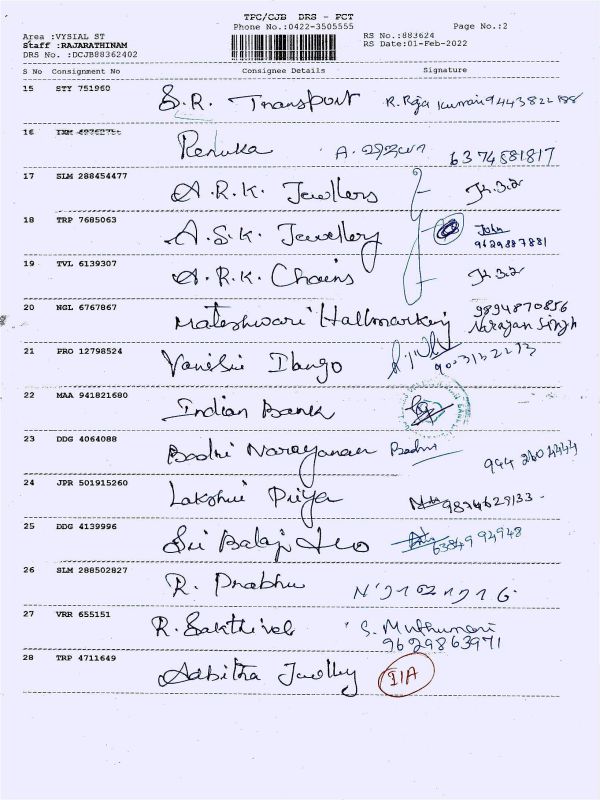 TPC/CJB DRS - PCT
Phone No.:0422-3505555 Page No.:2
Area :VYSIAL ST RS No.:883624
Staff :RAJARATHINAM RS Date:01-Feb-2022
DRS No. :DCJB88362402
S No Consignment No Consignee Details Signature
15 STY 751960 S.R. Transport
16 Renuka 6374581817
17 SLM 288454477 A.R.K. Jewllers
18 TRP 7685063 A.S.K. Jewellery John
9629887881
19 TVL 6139307 A.R.K. Chains
20 NGL 6767867 Mateshwari Hallmarking 9894870856
Narayan Singh
21 PRO 12798524
22 MAA 941821680 Indian Bank
23 DDG 4064088 Badri Narayanan Badri
24 JPR 501915260 Lakshmi Priya 9874629133
25 DDG 4139996 Sri Balaji 6384994948
26 SLM 288502827 R. Prabhu
27 VRR 655151 R. Sakthivel S. Muthumari
9629863971
28 TRP 4711649